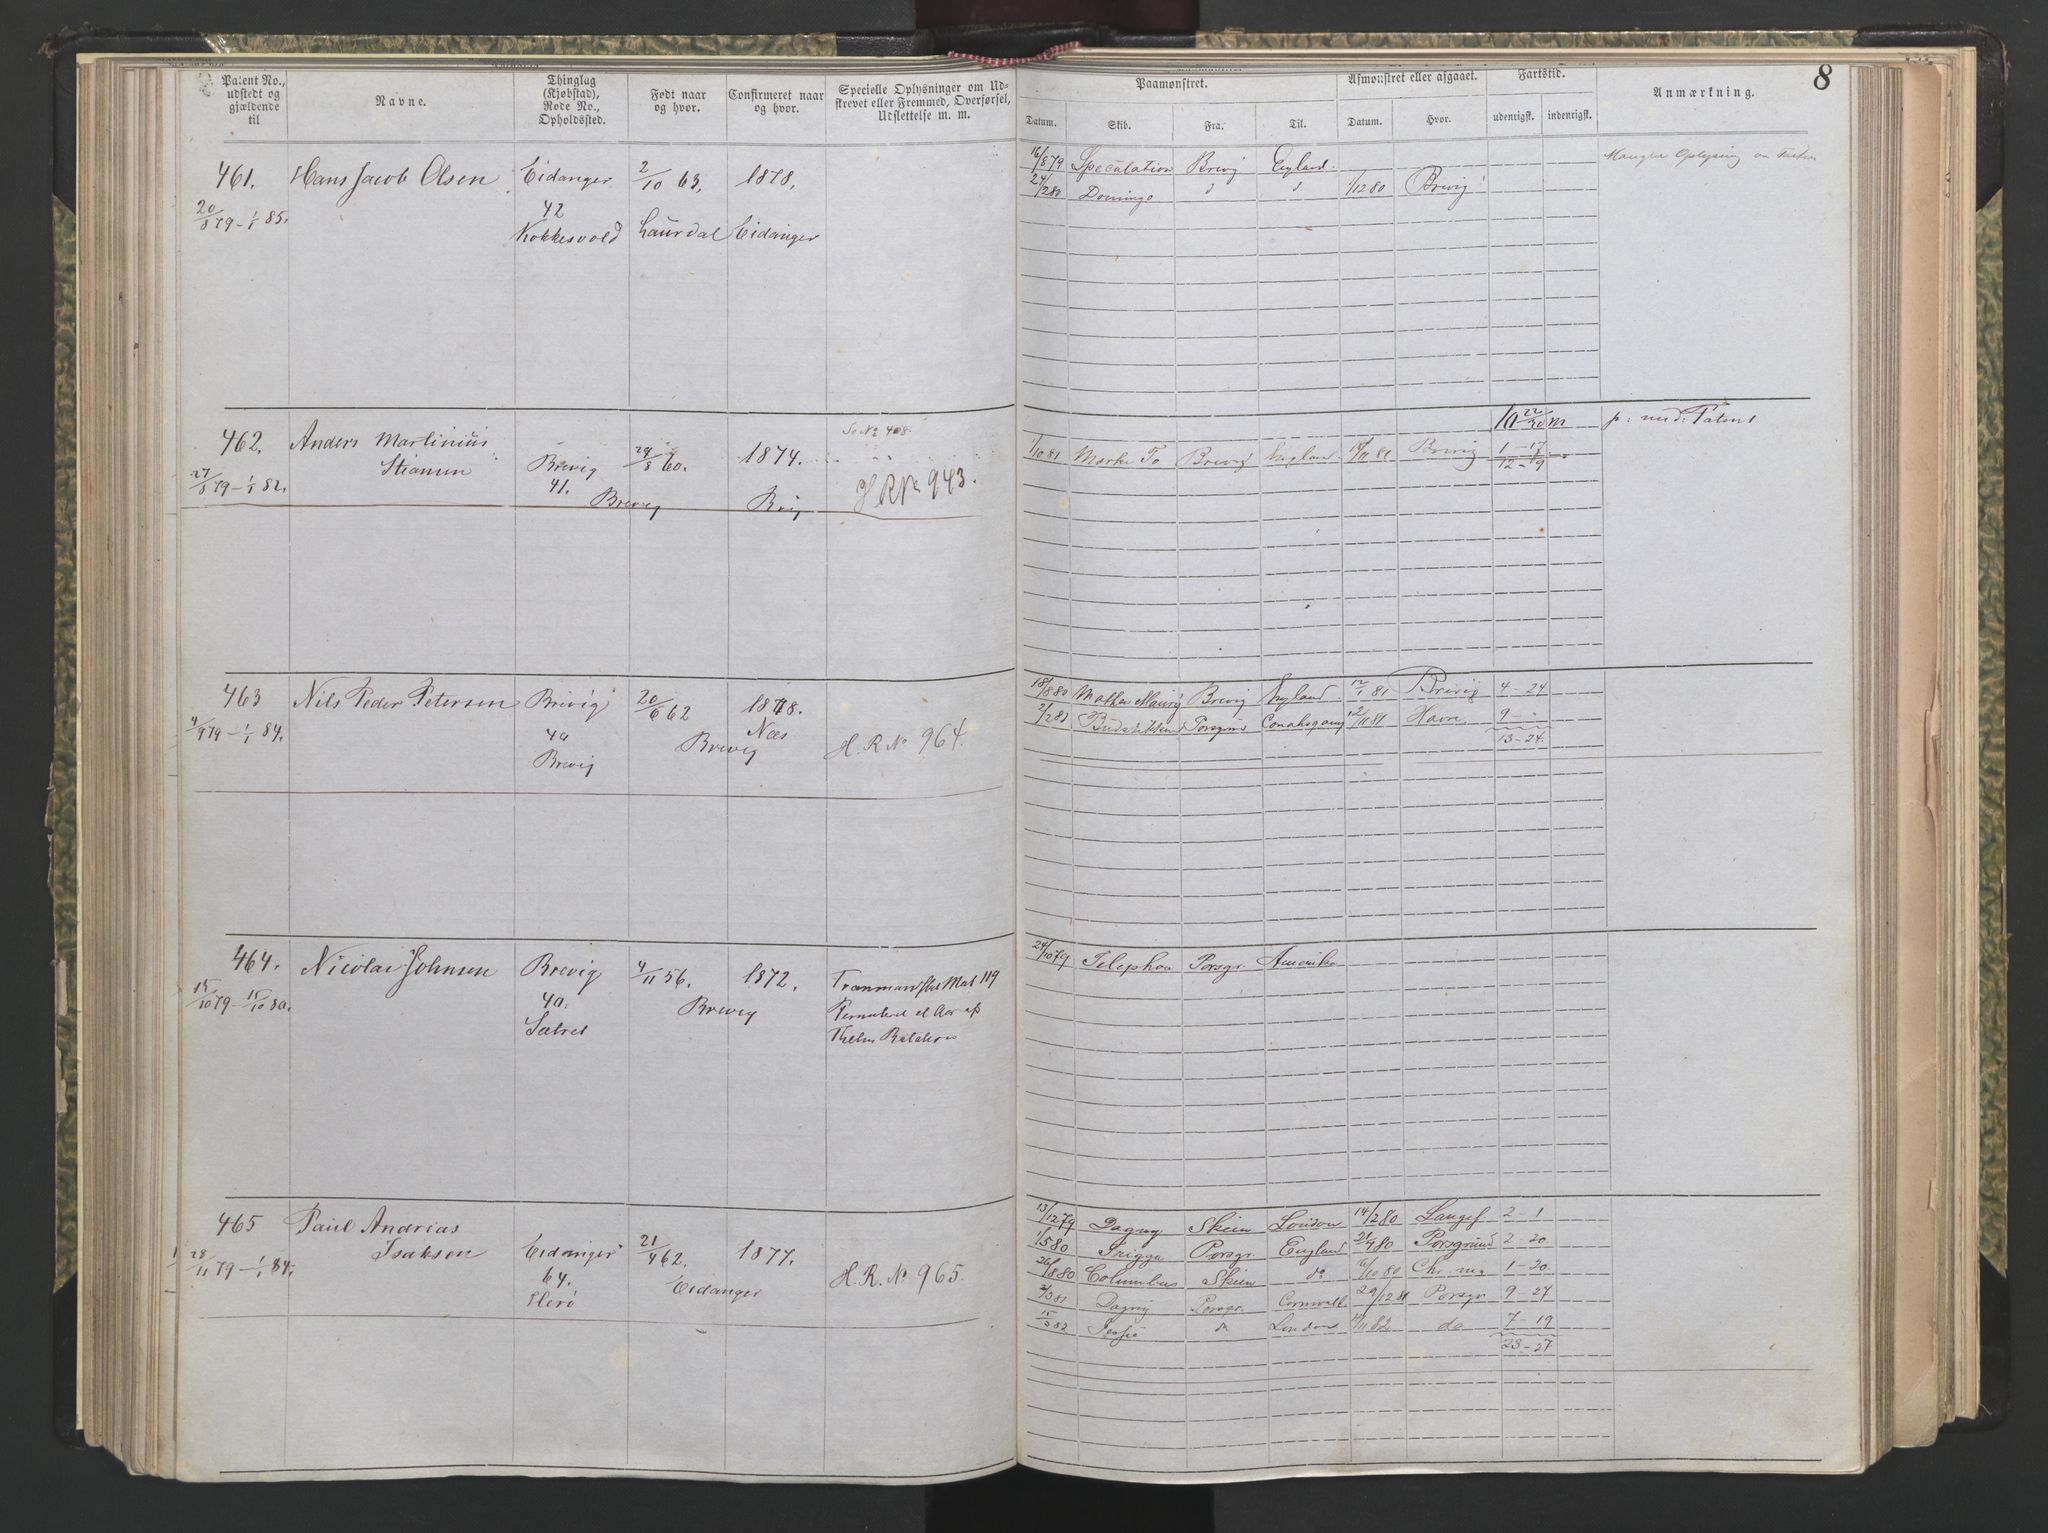 8
Patent No., udstedt og gjældende til
Navne.
Thinglag (Kjøbstad), Rode No., Opholdssted.
Født naar og hvor.
Confirmeret naar og hvor.
Specielle Oplysninger om Udskrevet eller Fremmed, Overførsel, Udslettelse m. m.
Paamønstret.
Afmønstret eller afgaaet.
Fartstid.
Anmærkning.
Datum. Skib. Fra. Til. Datum. Hvor. udenrigsk. indenrigsk.
461. Hans Jacob Olsen Eidanger 2/10 63. 1878.
20/8 79 – 1/1 85. 42
Kokkesvold Laurdal Eidanger
16/8 79 Speculation Brevig England
24/2 80 Domingo 1/12 80 Brevig
Mangler Oplysning om
462. Anders Martinius 1874. So No 408.
Stiansen Brevig 29/8 60.
27/8 79 – 1/1 82. 41. Brevig Bvig H R No 943.
p: med: Patent
1/10 81 Marke To Brevig England 81 Brevig 1 – 17
12 – 19
463 Nils Peder Petersen Brevig 20/6 62 1878.
4/9 79 – 1/1 84. 40 Brevig Næs H. R. No 964.
Brevig
18/8 80 Mathea Brevig England 12/1 81 Brevig 4 – 24
2/2 81 Budstikken Porsgrund 81 Havre 9 –
13 – 24
464. Nicolai Johnsen Brevig 4/11 56. 1872.
15/10 79 – 15/10 80. 40. Brevig
Sætret
24/10 79 Telephon Porsgr. Amerika
465 Paul Andrias
Isaksen Eidanger 21/4 62. 1877.
28/11 79 – 1/1 84. 64. Eidanger H. R. No 965.
Herø
13/12 79 Dagny Skien London 14/2 80 Langes 2 – 1
1/5 80 Frigga Porsgr. England 80 Porsgrund 2 – 20
26/8 80 Columbus Skien do 80 Chr.nia 1 – 20
81 Dagny Porsgr. Cornwall 29/12 81 Porsgr 9 – 27
82 do London 82 do 7 – 19
23 – 27